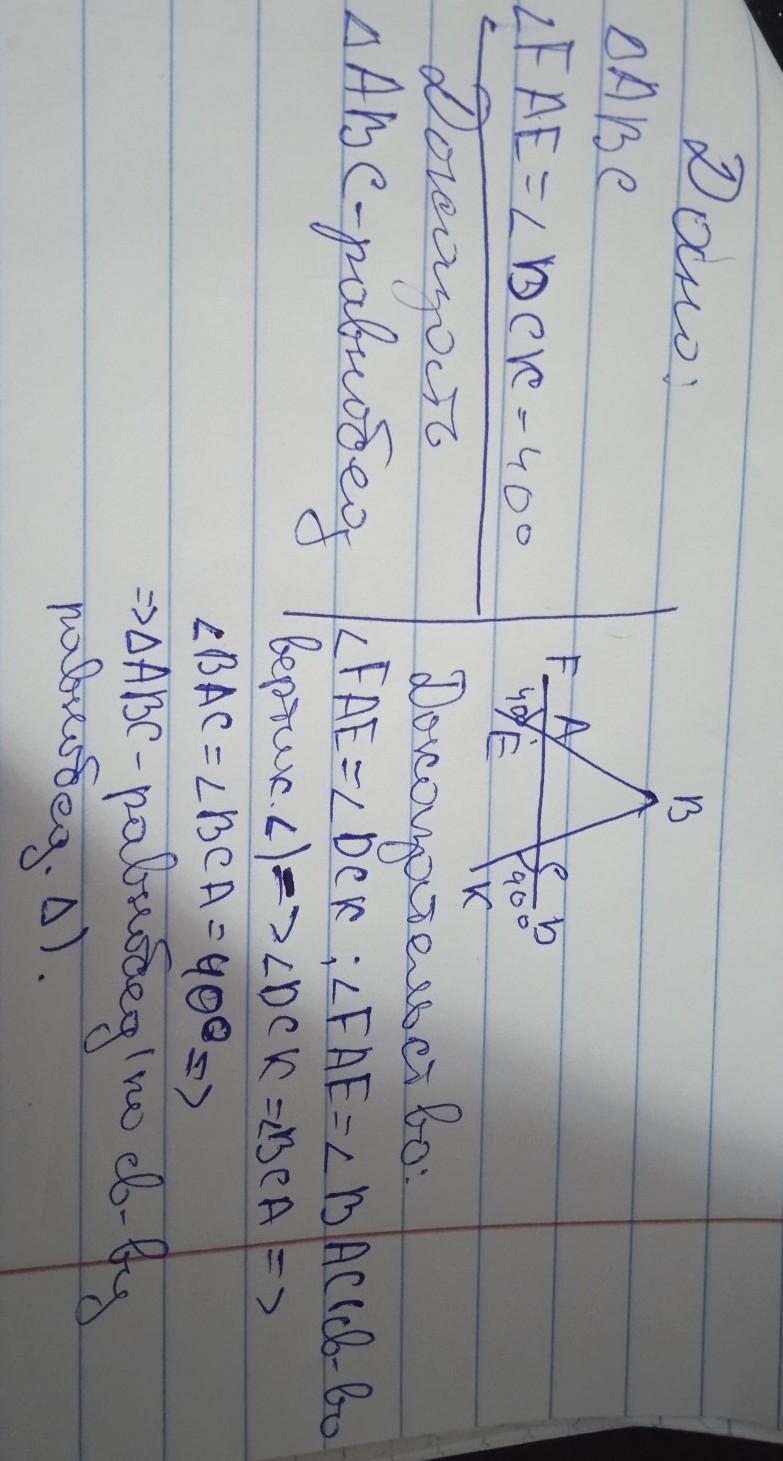 Дано:
△ABC
∠FAE=∠DCK=40°
Доказать
△ABC-равнобед
B
F A C D
40° 40°
E K
Доказательство:
∠FAE=∠DCK; ∠FAE=∠BAC(св-во
вертик.∠)=>∠DCK=∠BCA=>
∠BAC=∠BCA=40°=>
=>△ABC-равнобед(по св-ву
равнобед.△).